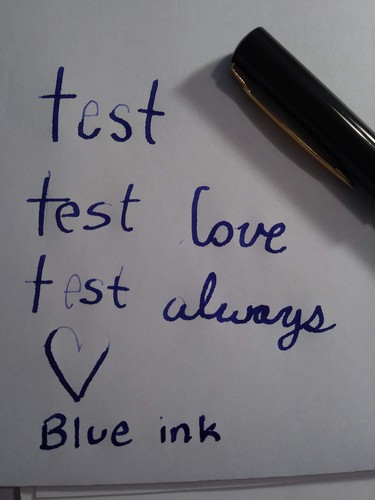 test
test love
test always
Blue ink